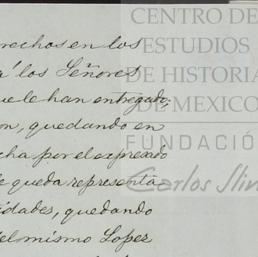 CENTRO DE
ESTUDIOS
DE HISTORIA
DE MEXICO
FUNDACIÓ
Carlos Slim
rechos en los
á los Señores
ue le han entregado
on, quedando en
cha por el expresado
e queda representa-
idades, quedando
el mismo Lopez